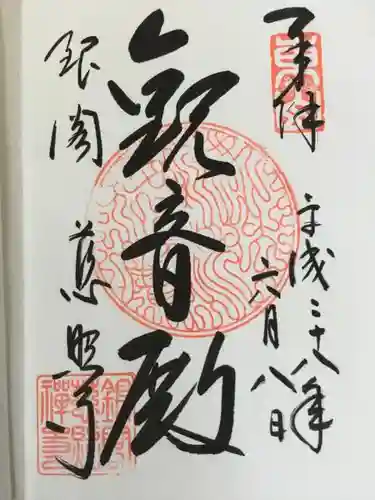 奉拝
平成二十八年
六月八日
観音殿
銀閣
慈照寺